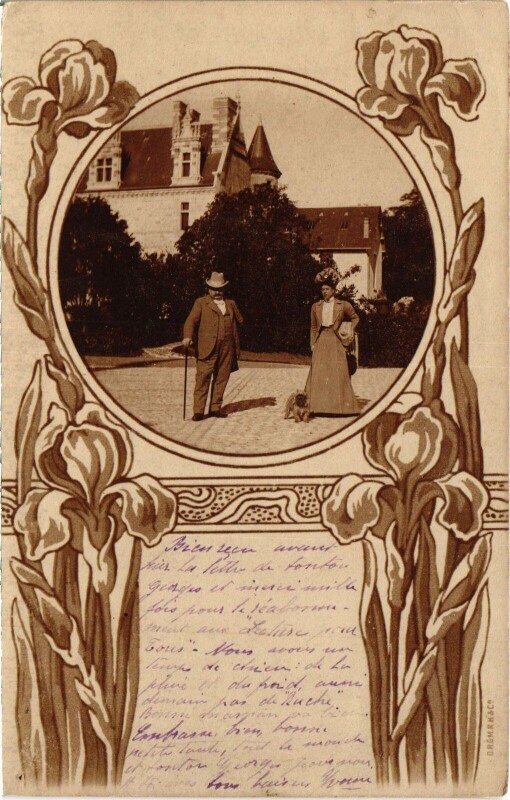 Bien reçu avant
hier la lettre de tonton
Georges et merci mille
fois pour le réabonne-
ment aux "Lectures pour
Tous" - Nous avons un
temps de chien: de la
pluie et du froid, aussi
demain pas de "Ruche"
Bonne maman va bien.
Embrasse bien, bonne
petite tante, tout le monde
et tonton Georges pour nous
bons baisers Yvonne
D.R.G.M.R.H.&Co.